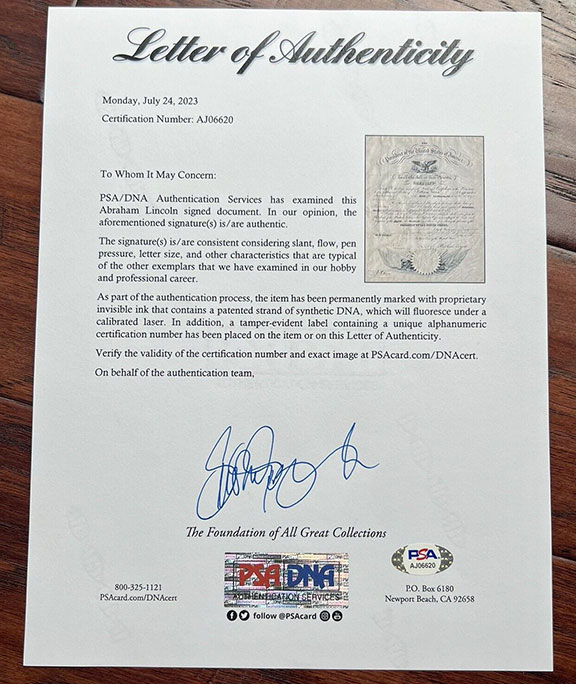 Letter of Authenticity
Monday, July 24, 2023
Certification Number: AJ06620
To Whom It May Concern:
PSA/DNA Authentication Services has examined this
Abraham Lincoln signed document. In our opinion, the
aforementioned signature(s) is/are authentic.
The signature(s) is/are consistent considering slant, flow, pen
pressure, letter size, and other characteristics that are typical
of the other exemplars that we have examined in our hobby
and professional career.
As part of the authentication process, the item has been permanently marked with proprietary
invisible ink that contains a patented strand of synthetic DNA, which will fluoresce under a
calibrated laser. In addition, a tamper-evident label containing a unique alphanumeric
certification number has been placed on the item or on this Letter of Authenticity.
Verify the validity of the certification number and exact image at PSAcard.com/DNAcert.
On behalf of the authentication team,
The Foundation of All Great Collections
PSA DNA
AUTHENTICATION SERVICES
PSA
AJ06620
800-325-1121
PSAcard.com/DNAcert
follow @PSAcard
P.O. Box 6180
Newport Beach, CA 92658